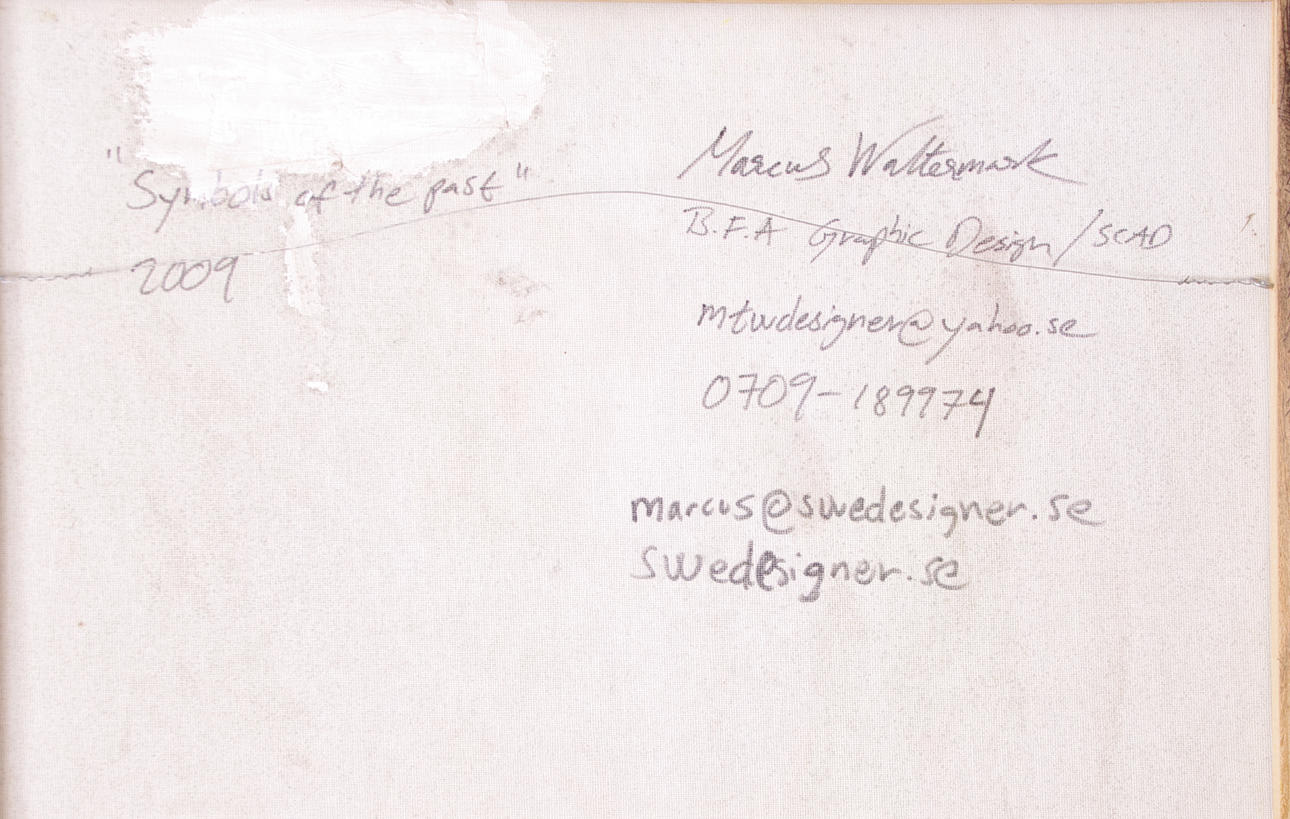 "Symbols of the past"
2009
Marcus Waltermark
B.F.A Graphic Design/SCAD
mtwdesigner@yahoo.se
0709-189974
marcus@swedesigner.se
swedesigner.se